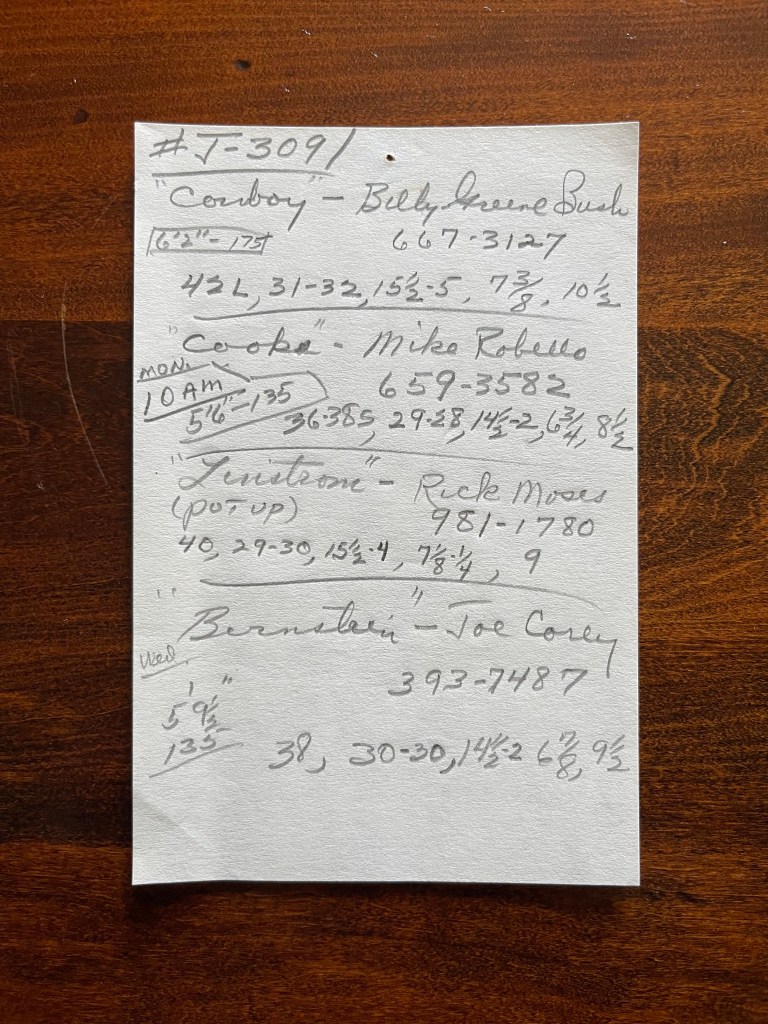 #J-3091
"Cowboy" - Billy Greene Bush
6'2" - 175
667-3127
42L, 31-32, 15½-5, 7⅜, 10½
"Cooke" - Mike Robello
MON.
10 AM
659-3582
5'6" - 135
36-38S, 29-28, 14½-2, 6¾, 8½
"Linstrom" - Rick Moses
(PUT UP)
981-1780
40, 29-30, 15½-4, 7⅛-¼, 9
"Bernstein" - Joe Corey
Wed.
393-7487
5' 9½"
135
38, 30-30, 14½-2 6⅞, 9½